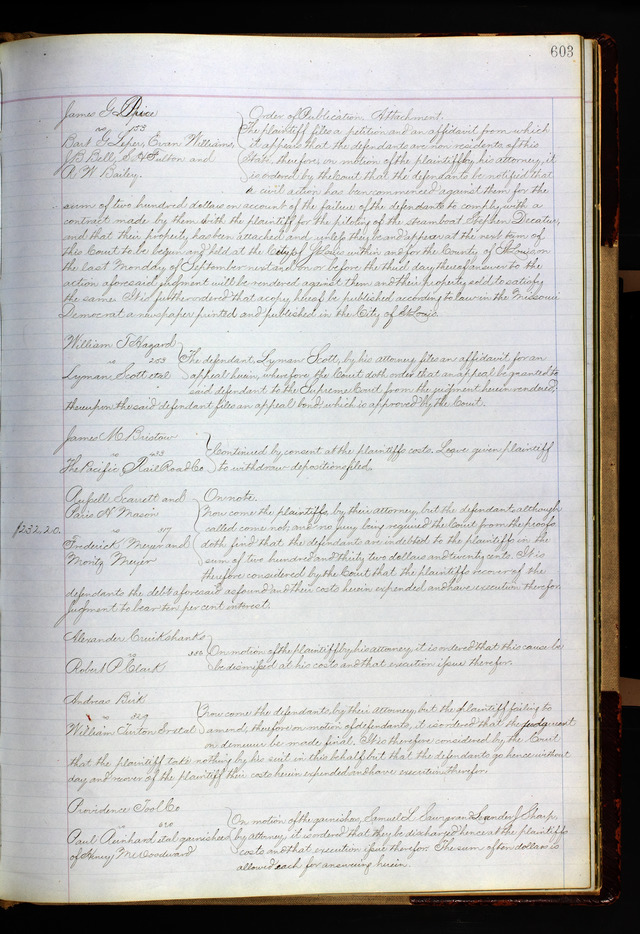 603
James G. Price
vs 153
Bart G. Lesser, Evan Williams,
J B Bell, S. A. Fulton and
A. W. Bailey.
Order of Publication. Attachment.
The plaintiff files a petition and an affidavit from which
it appears that the defendants are non residents of this
State, therefore, on motion of the plaintiff by his attorney, it
is ordered by the Court that the defendants be notified that
a civil action has been commenced against them for the
sum of two hundred dollars on account of the failure of the defendants to comply with a
contract made by them with the plaintiff for the piloting of the steamboat Stephen Decatur,
and that their property has been attached and unless they be and appear at the next term of
this Court to be begun and held at the City of St Louis within and for the County of St Louis on
the last Monday of September next and on or before the third day thereof answer to the
action aforesaid judgment will be rendered against them and their property sold to satisfy
the same. It is further ordered that a copy hereof be published according to law in the Missouri
Democrat a newspaper printed and published in the City of St Louis.
William T Hazard
vs 203
Lyman Scott et al
The defendant, Lyman Scott, by his attorney files an affidavit for an
appeal herein, wherefore the Court doth order that an appeal be granted to
said defendant to the Supreme Court from the judgment herein rendered,
thereupon the said defendant files an appeal bond, which is approved by the Court.
James M. Bristow
vs 233
The Pacific Rail Road Co
Continued by consent at the plaintiffs costs. Leave given plaintiff
to withdraw depositions filed.
Russell Scarrett and
Paris N. Mason
vs 317
Frederick Meyer and
Moritz Meyer
$232.20.
On note.
Now come the plaintiffs by their attorney, but the defendants although
called come not, and no jury being required the Court from the proofs
doth find that the defendants are indebted to the plaintiffs in the
sum of two hundred and thirty two dollars and twenty cents. It is
therefore considered by the Court that the plaintiffs recover of the
defendants the debt aforesaid as found and their costs herein expended and have execution therefor,
judgment to bear ten per cent interest.
Alexander Cruikshanks
vs
Robert P. Clark
On motion of the plaintiff by his attorney it is ordered that this cause be
be dismissed at his costs and that execution issue therefor.
Andreas Birk
vs 329
William Tinton Sr et al
Now come the defendants, by their attorney, but the plaintiff failing to
amend, therefore on motion of defendants, it is ordered that the judgment
on demurrer be made final. It is therefore considered by the Court
that the plaintiff take nothing by his suit in this behalf but that the defendants go hence without
day and recover of the plaintiff their costs herein expended and have execution therefor.
Providence Tool Co
vs 620
Paul Reinhard et al garnishees
of Henry McWoodward
On motion of the garnishees, Samuel L. Sawyer and Leander J Sharp,
by attorney, it is ordered that they be discharged hence at the plaintiffs
costs and that execution issue therefor. The sum of ten dollars is
allowed each for answering herein.